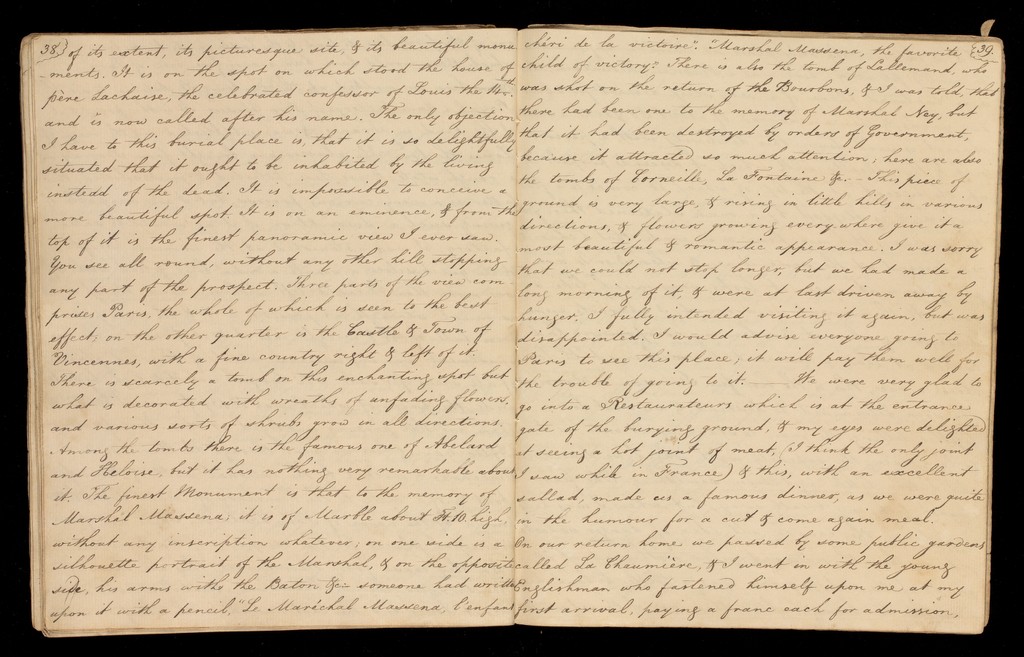 38. of its extent, its picturesque site, & its beautiful monu
-ments. It is on the spot on which stood the house of
père Lachaise, the celebrated confessor of Louis the 14th
and is now called after his name. The only objection
I have to this burial place is, that it is so delightfully
situated that it ought to be inhabited by the living
instead of the dead. It is impossible to conceive a
more beautiful spot. It is on an eminence, & from the
top of it is the finest panoramic view I ever saw.
You see all round, without any other hill stopping
any part of the prospect. Three parts of the view com
prises Paris, the whole of which is seen to the best
effect; on the other quarter is the Castle & Town of
Vincennes, with a fine country right & left of it.
There is scarcely a tomb on this enchanting spot but
what is decorated with wreaths of unfading flowers,
and various sorts of shrubs grow in all directions.
Among the tombs there is the famous one of Abelard
and Heloise, but it has nothing very remarkable about
it. The finest Monument is that to the memory of
Marshal Massena; it is of Marble about Ft. 10. high,
without any inscription whatever; on one side is a
silhouette portrait of the Marshal, & on the opposite
side, his arms with the Baton &c— someone had written
upon it with a pencil, "Le Maréchal Massena, l'enfant
39.
chéri de la victoire". "Marshal Massena, the favorite
child of victory." There is also the tomb of Lallemand, who
was shot on the return of the Bourbons, & I was told, that
there had been one to the memory of Marshal Ney, but
that it had been destroyed by orders of Government,
because it attracted so much attention; here are also
the tombs of Corneille, La Fontaine &c.— This piece of
ground is very large, & rising in little hills in various
directions, & flowers growing every where give it a
most beautiful & romantic appearance. I was sorry
that we could not stop longer, but we had made a
long morning of it, & were at last driven away by
hunger. I fully intended visiting it again, but was
disappointed. I would advise everyone going to
Paris to see this place; it will pay them well for
the trouble of going to it. —— We were very glad to
go into a Restaurateurs which is at the entrance
gate of the burying ground, & my eyes were delighted
at seeing a hot joint of meat, (I think the only joint
I saw while in France) & this, with an excellent
sallad, made us a famous dinner, as we were quite
in the humour for a cut & come again meal.
On our return home we passed by some public gardens
called La Chaumière, & I went in with the young
Englishman who fastened himself upon me at my
first arrival, paying a franc each for admission,